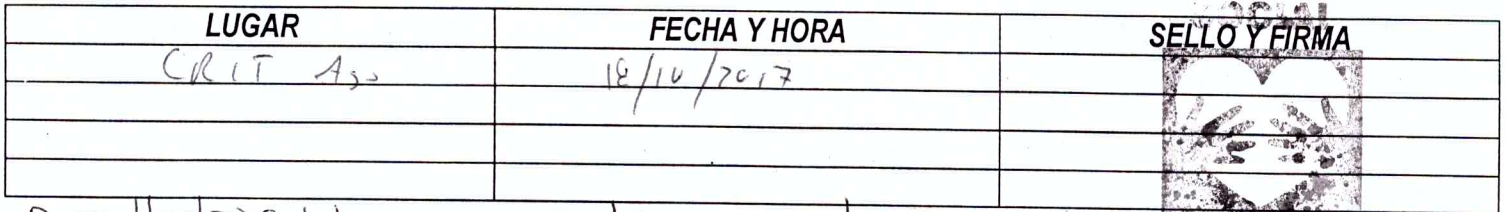 SOCIAL
LUGAR FECHA Y HORA SELLO Y FIRMA
CRIT Ags 18/10/2017